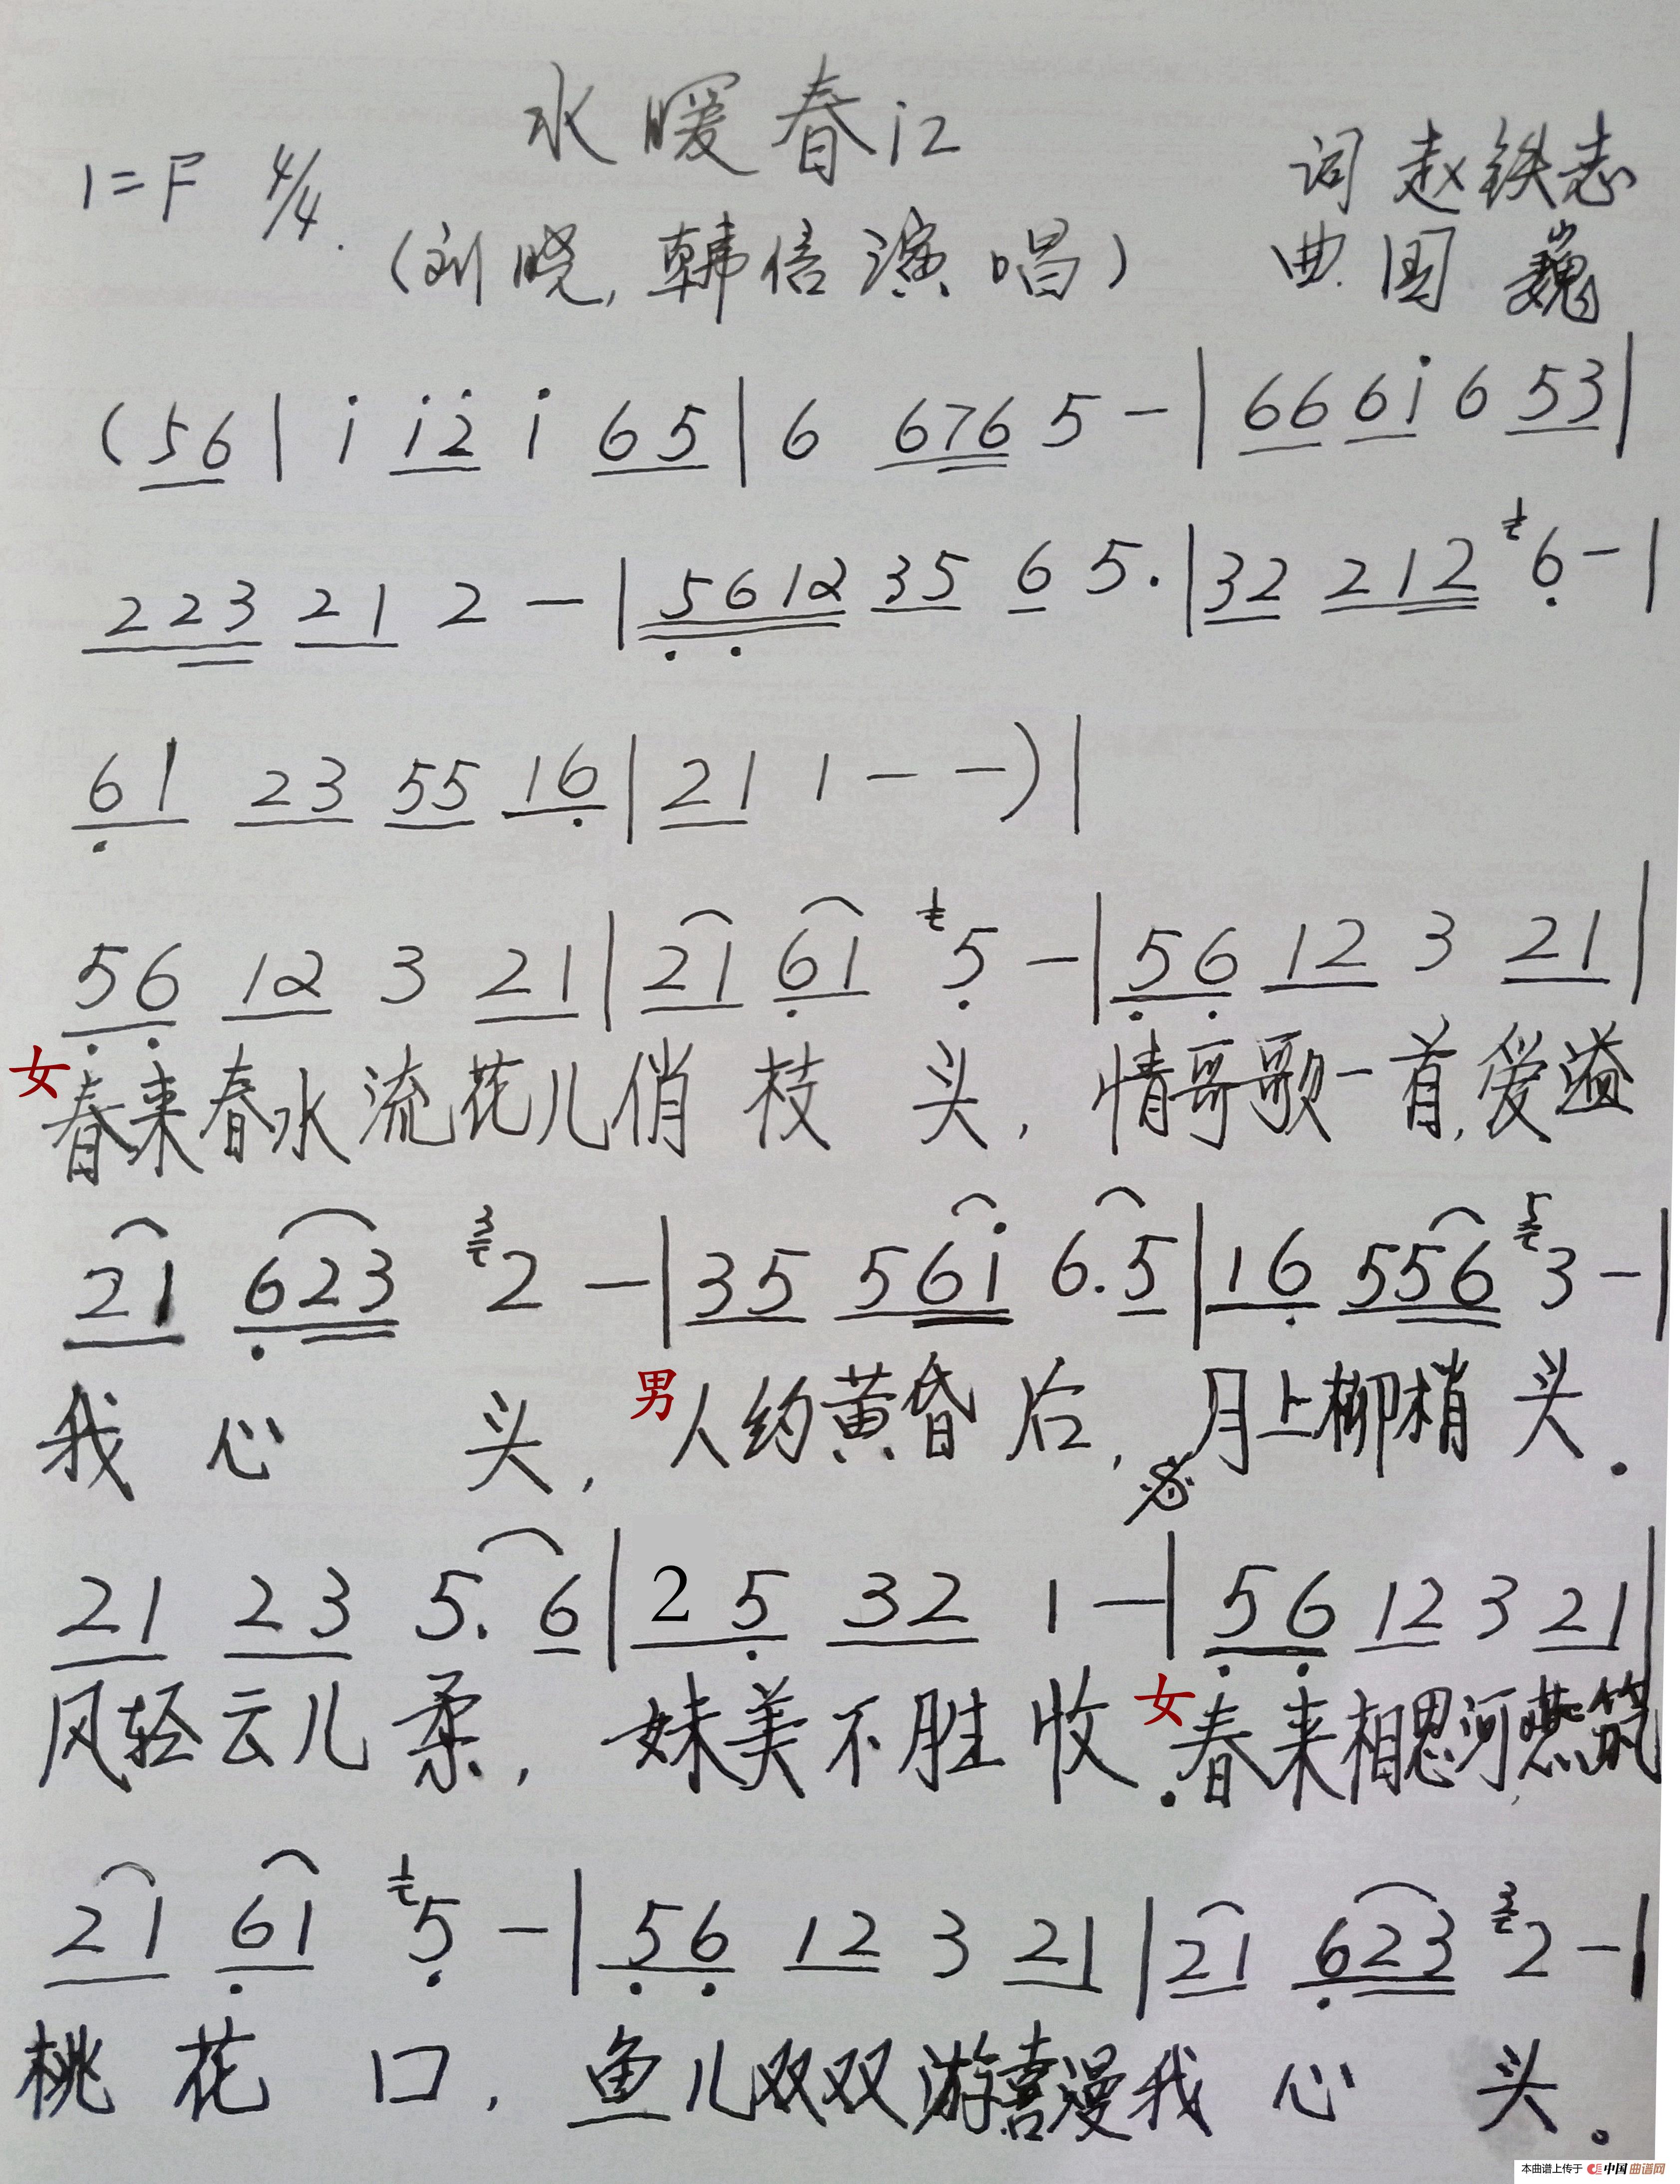 水暖春江
1=F 4/4 词 赵铁志
(刘晓,韩倍演唱) 曲 国巍
(56| i i2 i 65|6 676 5-|66 6i 6 53|
223 21 2-|5612 35 6 5.|32 212 6-|
61 23 55 16|21 1--)|
56 12 3 21|21 61 5-|56 12 3 21|
女 春来春水流花儿俏枝头,情哥歌一首,爱溢
21 623 2-|35 56i 6.5|16 556 3-|
我心头, 男 人约黄昏后,月上柳梢头.
21 23 5.6|25 32 1-|56 12 3 21|
风轻云儿柔,妹美不胜收. 女 春来相思河,燕筑
21 61 5-|56 12 3 21|21 623 2-|
桃花口,鱼儿双双游喜漫我心头。
本曲谱上传于 中国曲谱网